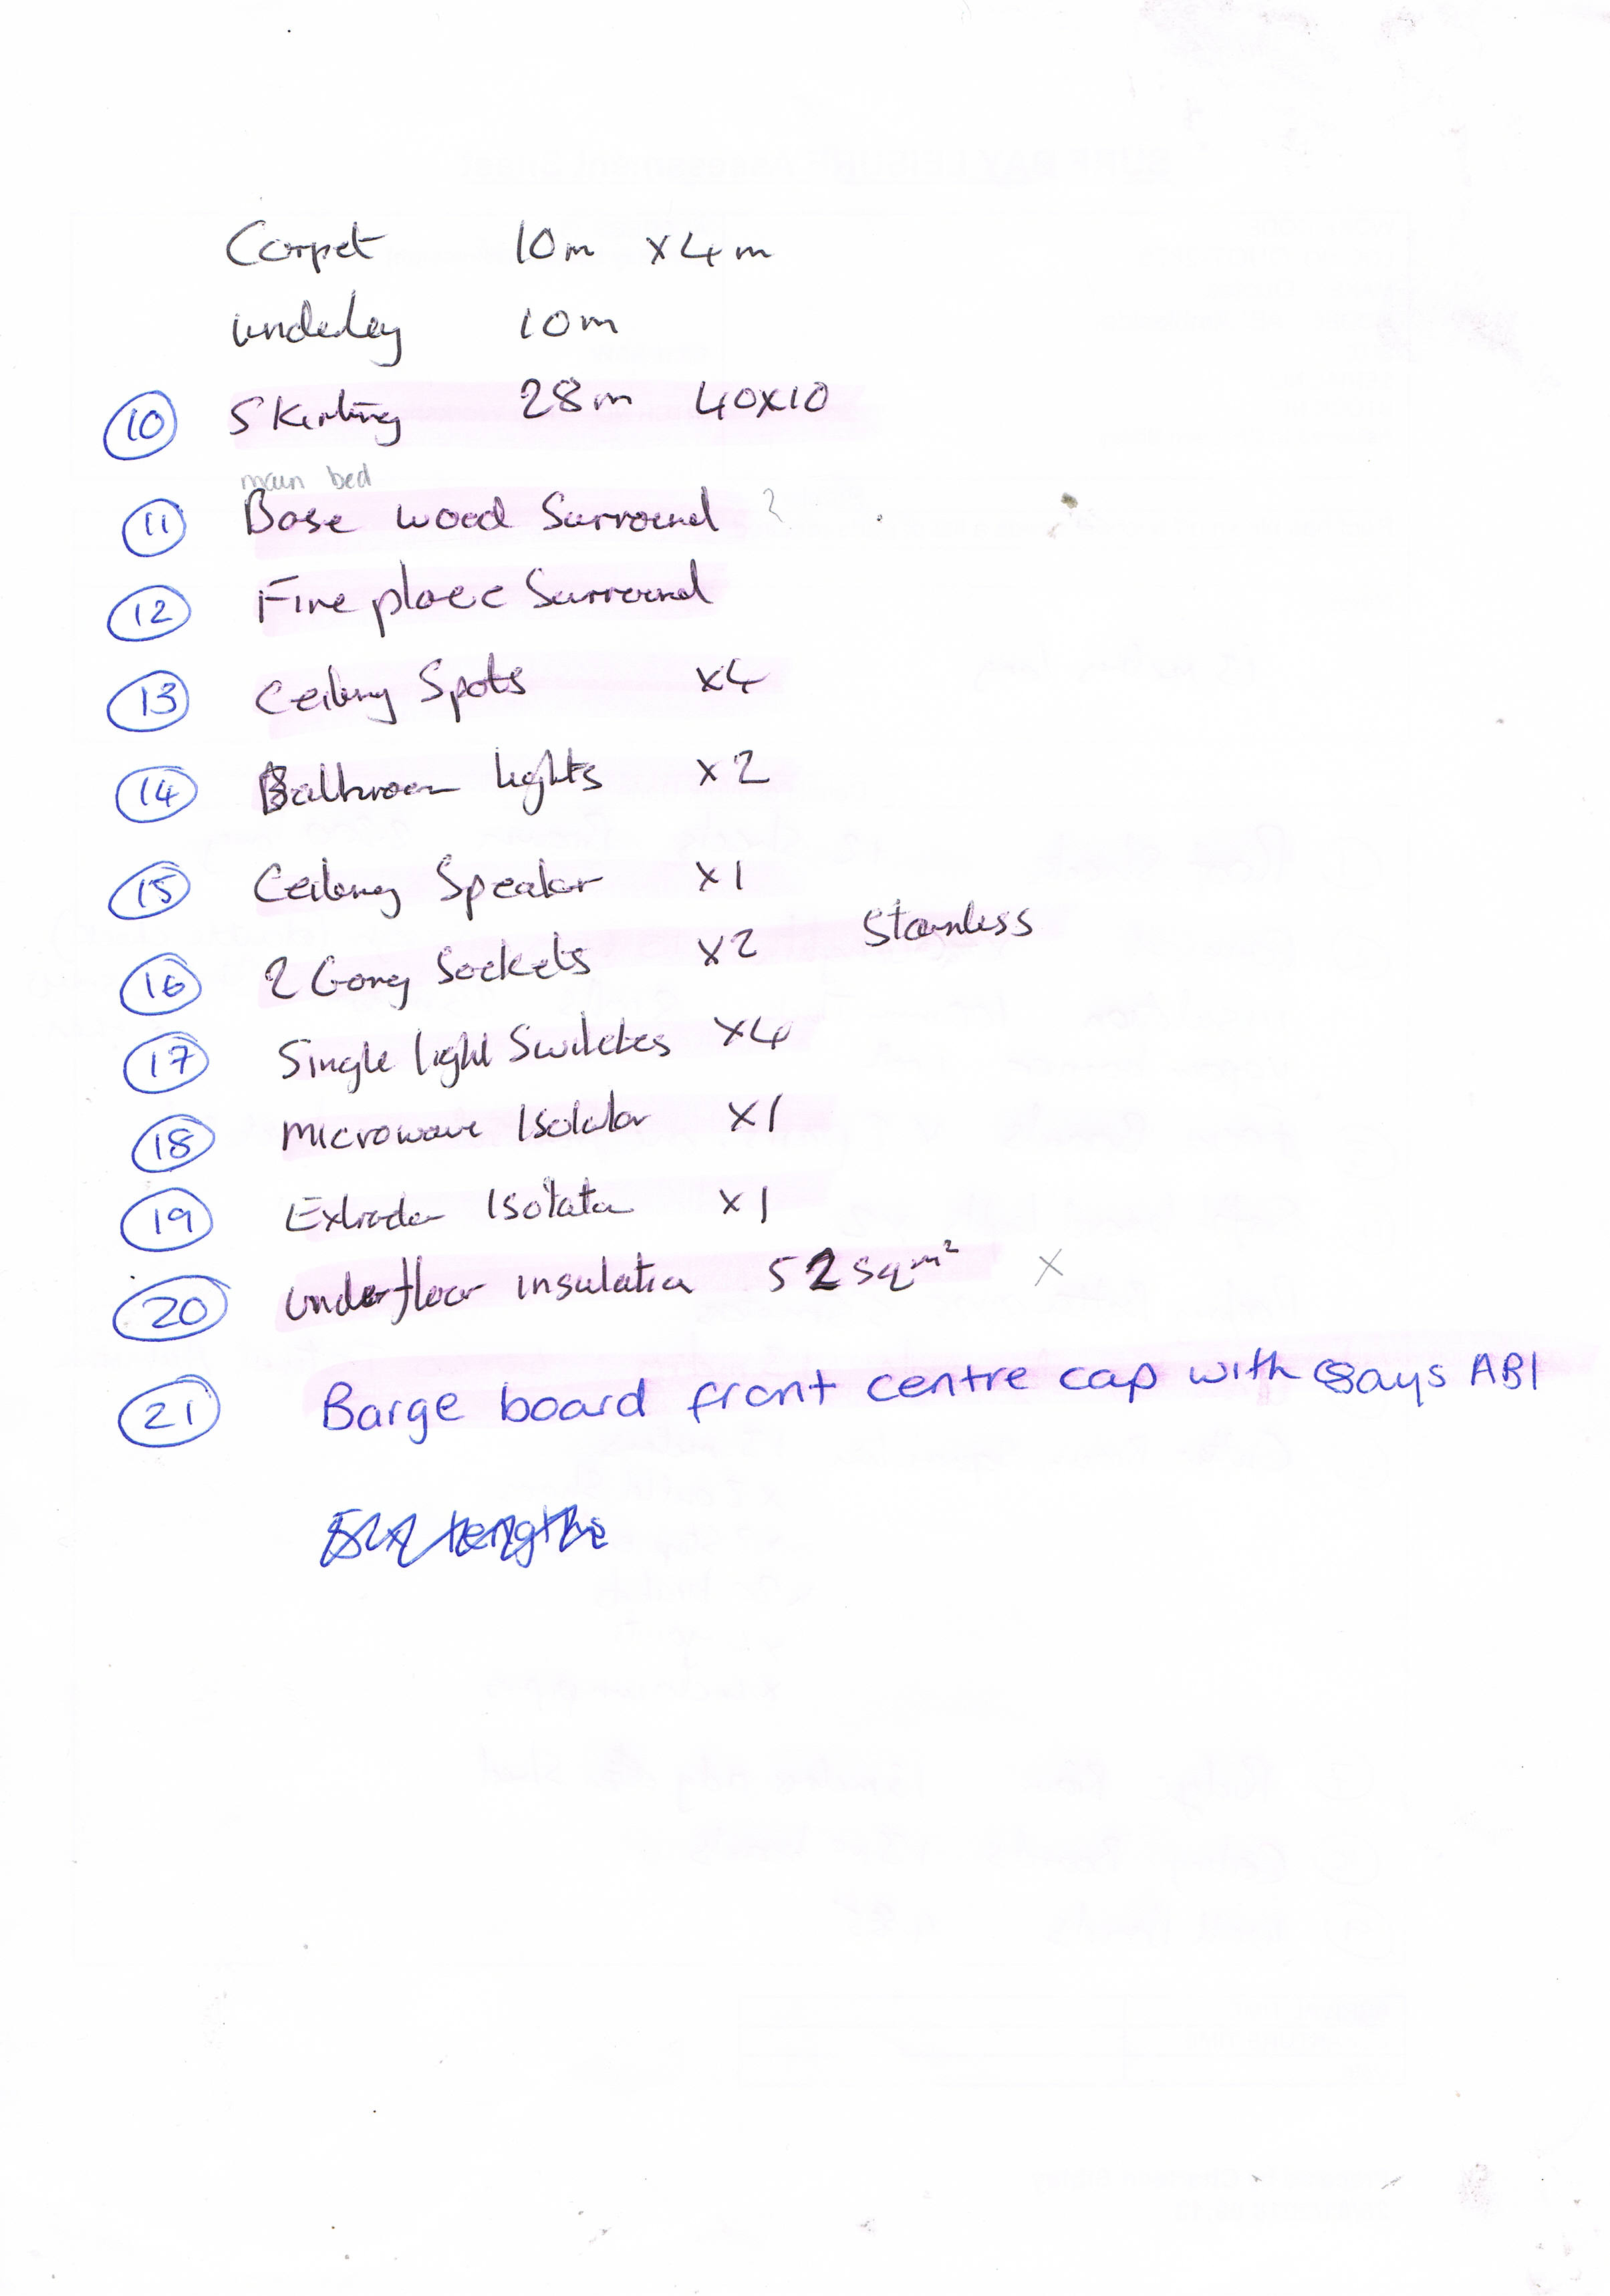 Carpet 10m x4m
underlay 10m
10 Skirting 28m 40x10
main bed
11 Base wood Surround ?
12 Fire place Surround
13 Ceiling Spots x4
14 Bathroom lights x2
15 Ceiling Speaker x1
16 2 Gang Sockets x2 Stainless
17 Single light Switches x4
18 Microwave Isolator x1
19 Extractor Isolator x1
20 underfloor insulation 52 sqm² x
21 Barge board front centre cap with says ABI